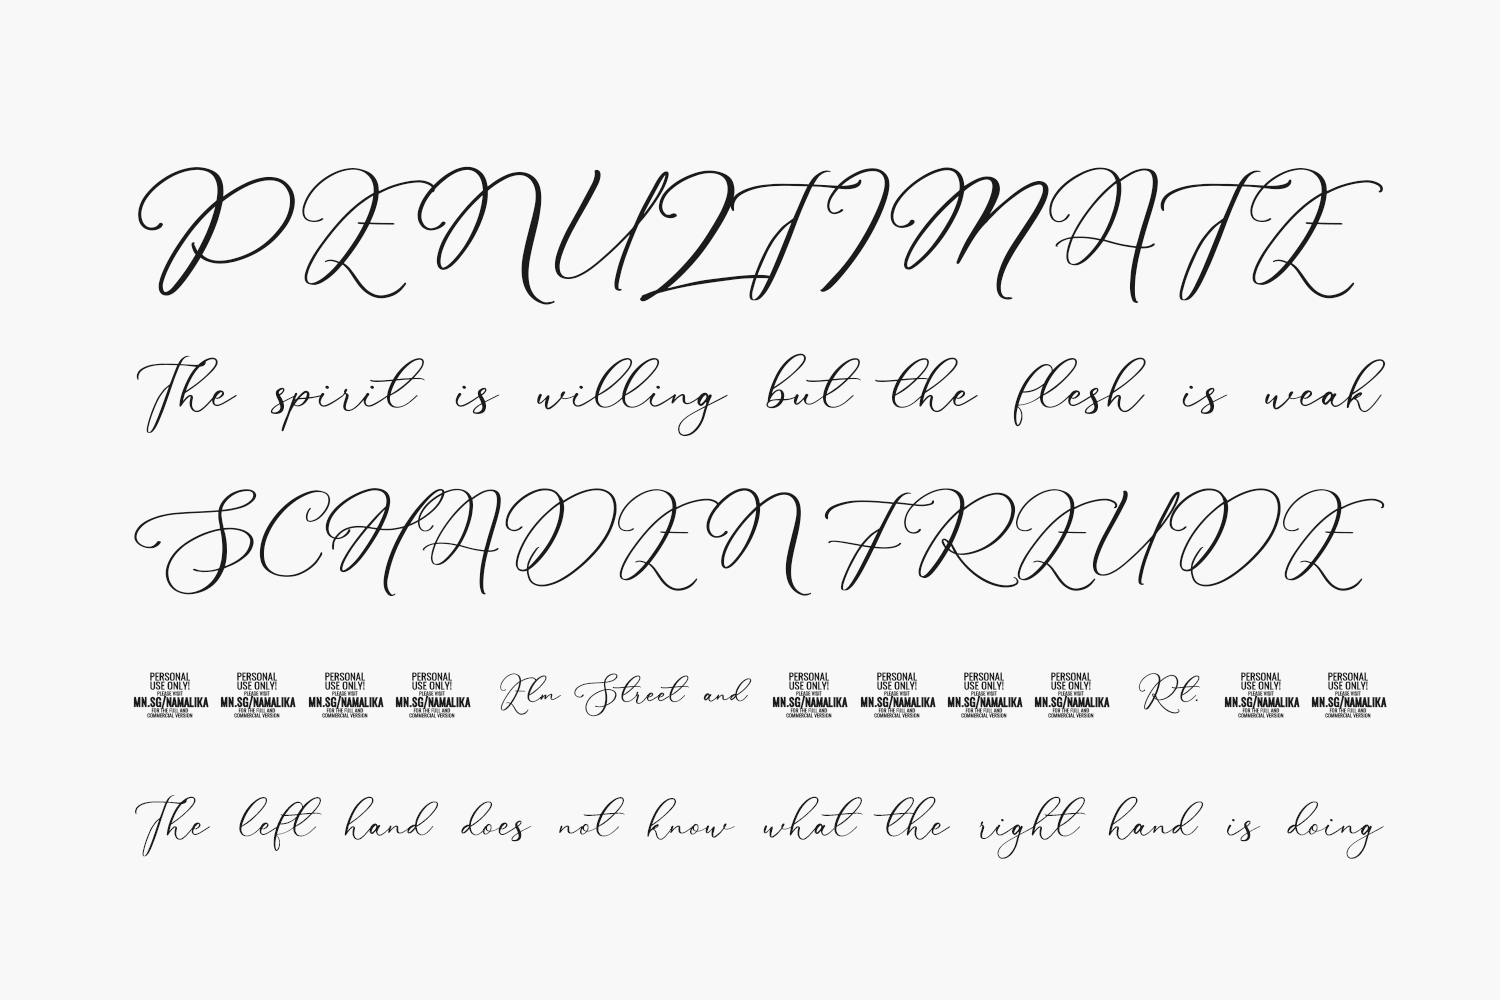 PENULTIMATE
The spirit is willing but the flesh is weak
SCHADENFREUDE
PERSONAL USE ONLY! PLEASE VISIT MN.SG/NAMALIKA FOR THE FULL AND COMMERCIAL VERSION PERSONAL USE ONLY! PLEASE VISIT MN.SG/NAMALIKA FOR THE FULL AND COMMERCIAL VERSION PERSONAL USE ONLY! PLEASE VISIT MN.SG/NAMALIKA FOR THE FULL AND COMMERCIAL VERSION PERSONAL USE ONLY! PLEASE VISIT MN.SG/NAMALIKA FOR THE FULL AND COMMERCIAL VERSION Elm Street and PERSONAL USE ONLY! PLEASE VISIT MN.SG/NAMALIKA FOR THE FULL AND COMMERCIAL VERSION PERSONAL USE ONLY! PLEASE VISIT MN.SG/NAMALIKA FOR THE FULL AND COMMERCIAL VERSION PERSONAL USE ONLY! PLEASE VISIT MN.SG/NAMALIKA FOR THE FULL AND COMMERCIAL VERSION PERSONAL USE ONLY! PLEASE VISIT MN.SG/NAMALIKA FOR THE FULL AND COMMERCIAL VERSION Rt. PERSONAL USE ONLY! PLEASE VISIT MN.SG/NAMALIKA FOR THE FULL AND COMMERCIAL VERSION PERSONAL USE ONLY! PLEASE VISIT MN.SG/NAMALIKA FOR THE FULL AND COMMERCIAL VERSION
The left hand does not know what the right hand is doing